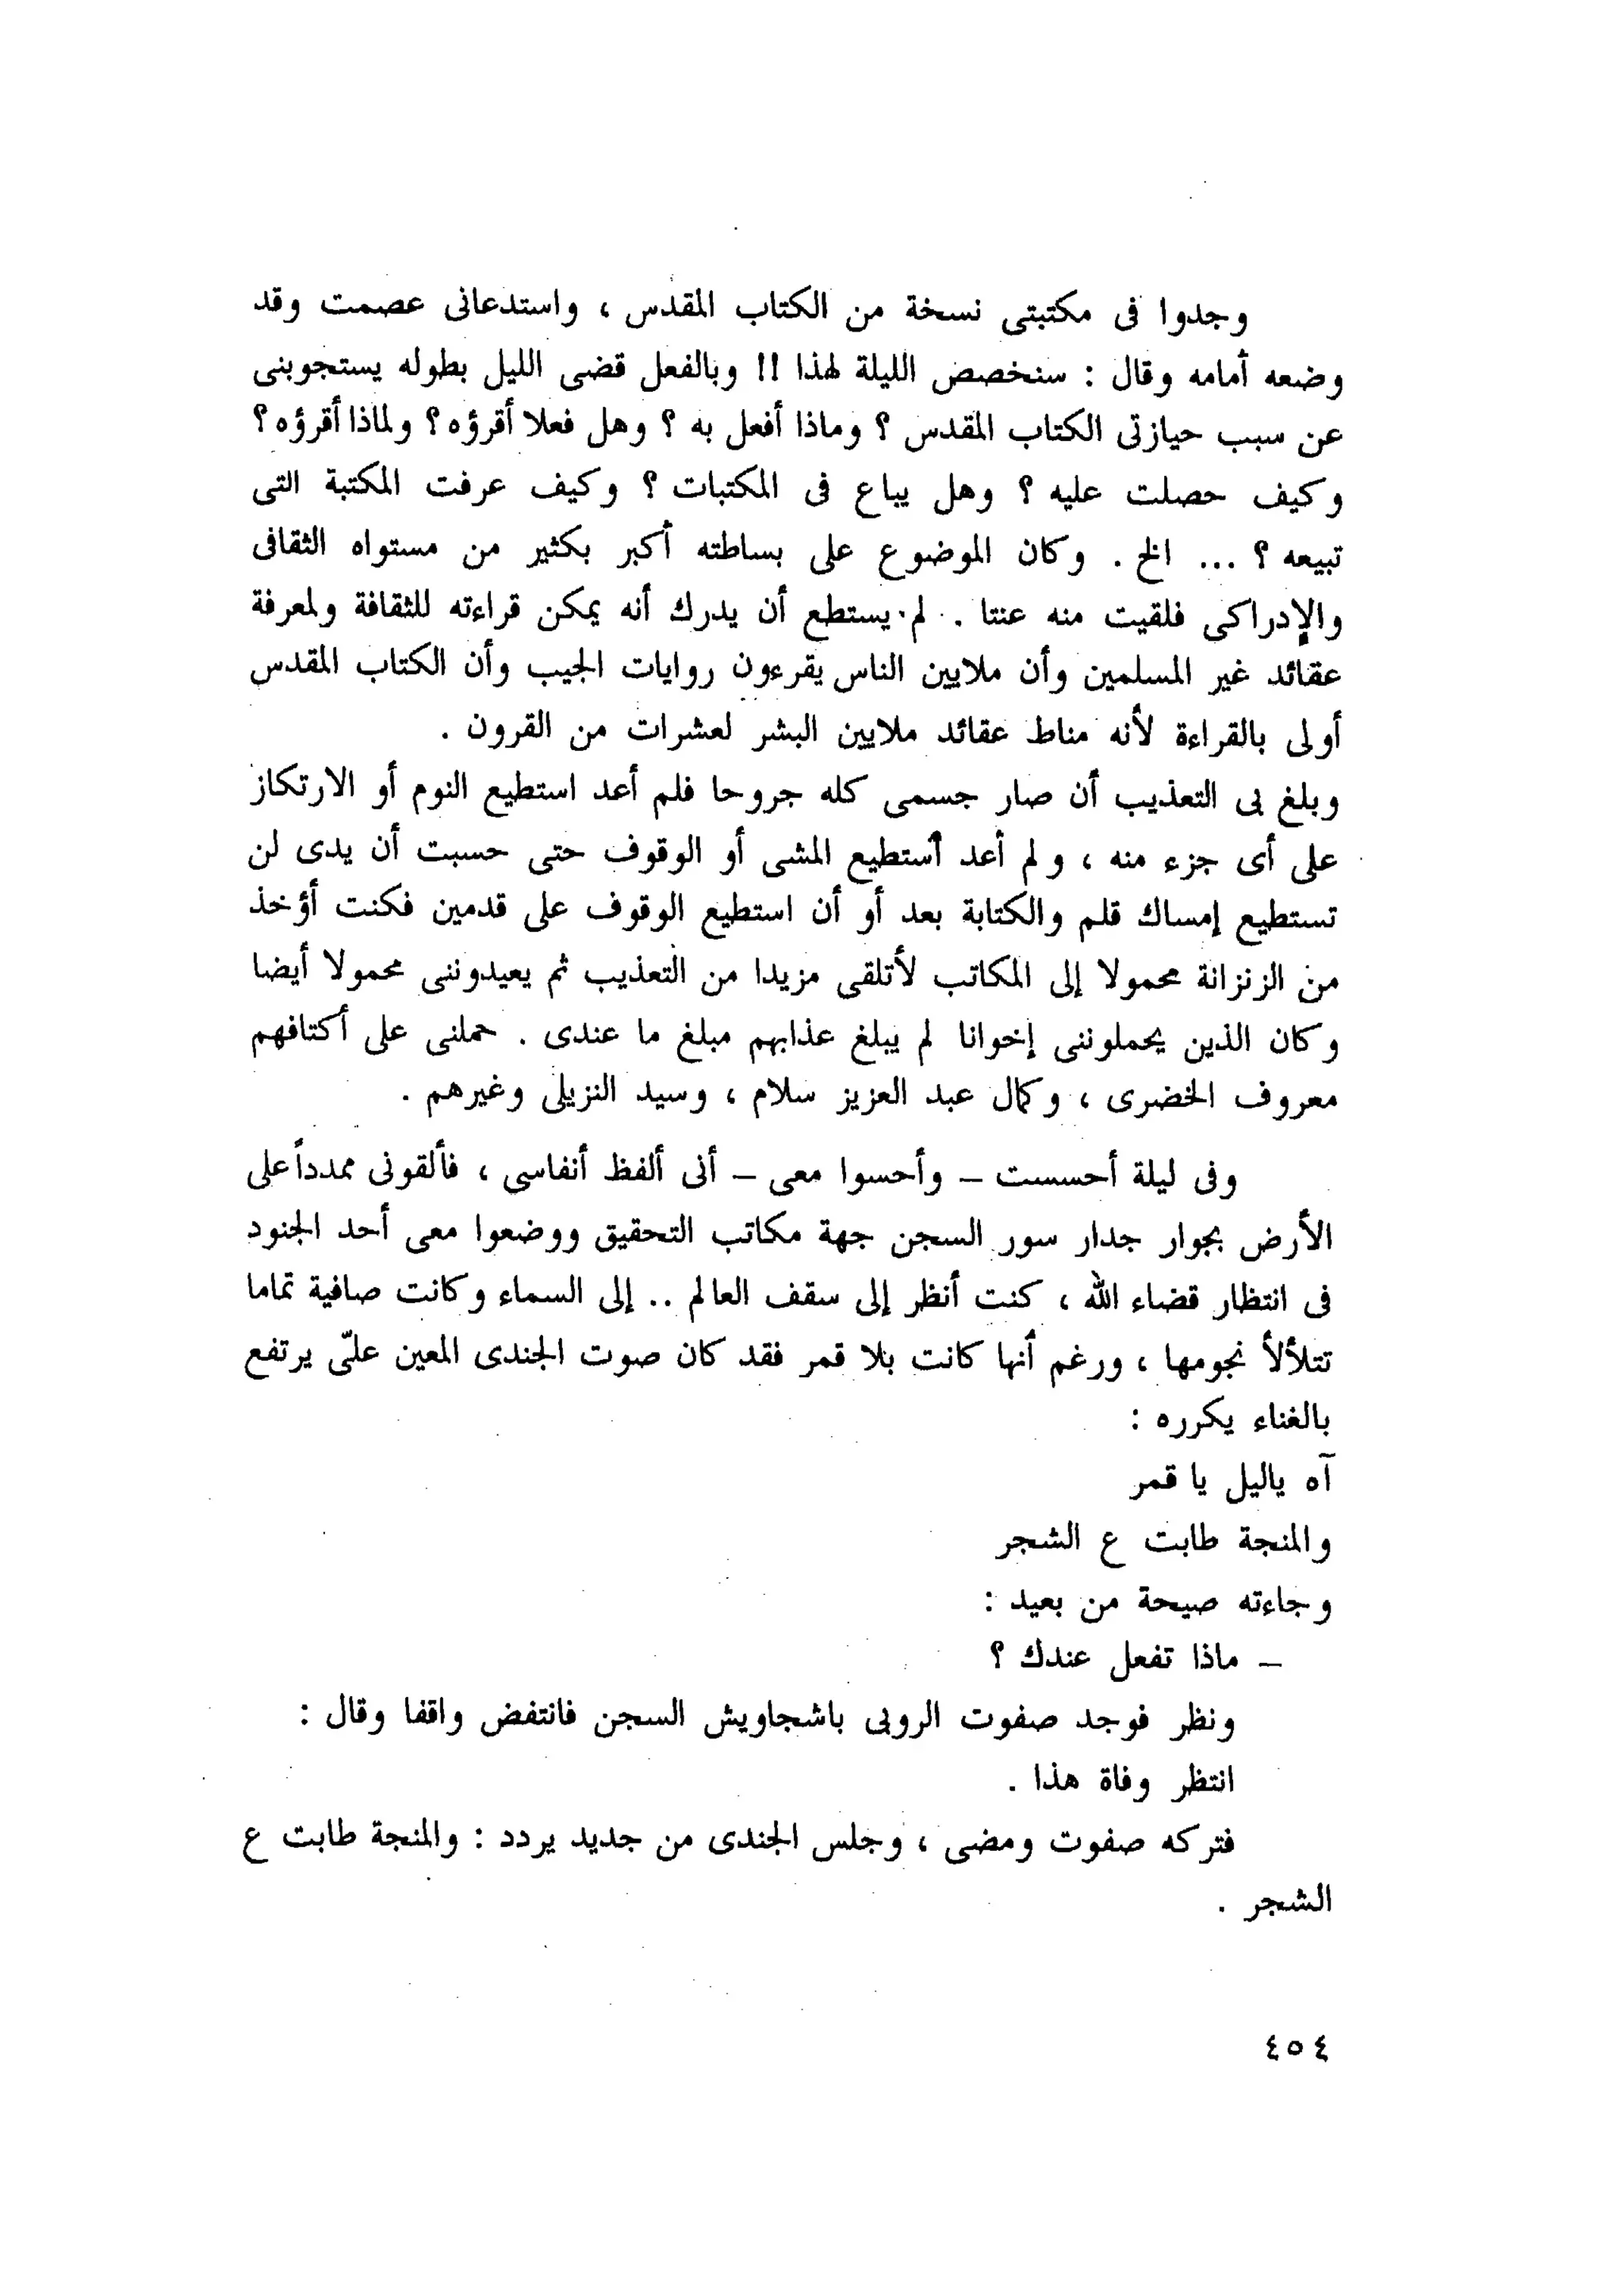 وجدوا فى مكتبتى نسخة من الكتاب المقدس ، واستدعانى عصمت وقد
وضعه أمامه وقال : سنخصص الليلة لهذا !! وبالفعل قضى الليل بطوله يستجوبنى
عن سبب حيازتى الكتاب المقدس ؟ وماذا أفعل به ؟ وهل فعلا أقرؤه ؟ ولماذا أقرؤه ؟
وكيف حصلت عليه ؟ وهل يباع فى المكتبات ؟ وكيف عرفت المكتبة التى
تبيعه ؟ ... الخ . وكان الموضوع على بساطته أكبر بكثير من مستواه الثقافى
والإدراكى فلقيت منه عنتا . لم يستطع أن يدرك أنه يمكن قراءته للثقافة ولمعرفة
عقائد غير المسلمين وأن ملايين الناس يقرءون روايات الجيب وأن الكتاب المقدس
أولى بالقراءة لأنه مناط عقائد ملايين البشر لعشرات من القرون .
وبلغ بى التعذيب أن صار جسمى كله جروحا فلم أعد استطيع النوم أو الارتكاز
على أى جزء منه ، ولم أعد أستطيع المشى أو الوقوف حتى حسبت أن يدى لن
تستطيع إمساك قلم والكتابة بعد أو أن استطيع الوقوف على قدمين فكنت أؤخذ
من الزنزانة محمولا إلى المكاتب لأتلقى مزيدا من التعذيب ثم يعيدوننى محمولا أيضا
وكان الذين يحملوننى إخوانا لم يبلغ عذابهم مبلغ ما عندى . حملنى على أكتافهم
معروف الخضرى ، وكمال عبد العزيز سلام ، وسيد النزيلى وغيرهم .
وفى ليلة أحسست – وأحسوا معى – أنى ألفظ أنفاسى ، فألقونى ممدداً على
الأرض بجوار جدار سور السجن جهة مكاتب التحقيق ووضعوا معى أحد الجنود
فى انتظار قضاء الله ، كنت أنظر إلى سقف العالم .. إلى السماء وكانت صافية تماما
تتلألأ نجومها ، ورغم أنها كانت بلا قمر فقد كان صوت الجندى المعين علىّ يرتفع
بالغناء يكرره :
آه ياليل يا قمر
والمنجة طابت ع الشجر
وجاءته صيحة من بعيد :
– ماذا تفعل عندك ؟
ونظر فوجد صفوت الروبى باشجاويش السجن فانتفض واقفا وقال :
انتظر وفاة هذا .
فتركه صفوت ومضى ، وجلس الجندى من جديد يردد : والمنجة طابت ع
الشجر .
٤٥٤